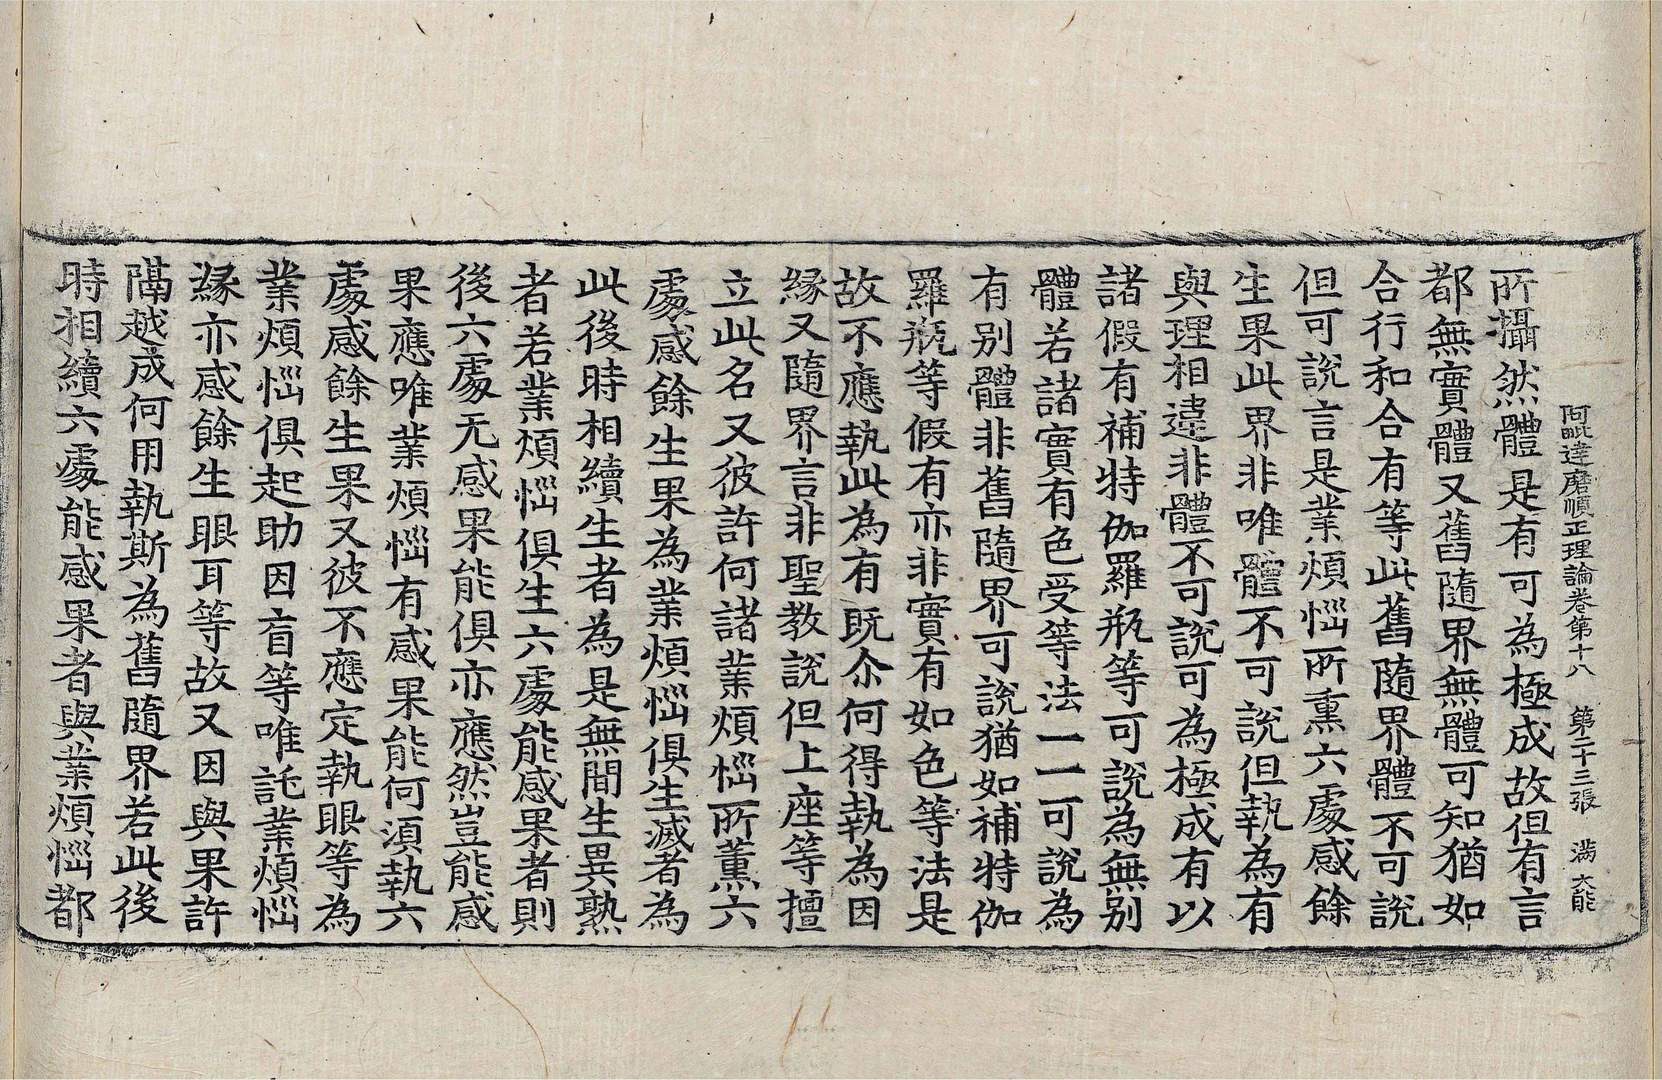 阿毗達磨順正理論卷第十八 第二十三張 滿 大能
所攝然體是有可為極成故但有言
都無實體又舊隨界無體可知猶如
合行和合有等此舊隨界體不可說
但可說言是業煩惱所熏六處感餘
生果此界非唯體不可說但執為有
與理相違非體不可說可為極成有以
諸假有補特伽羅瓶等可說為無別
體若諸實有色受等法一一可說為
有別體非舊隨界可說猶如補特伽
羅瓶等假有亦非實有如色等法是
故不應執此為有既尒何得執為因
緣又隨界言非聖教說但上座等擅
立此名又彼許何諸業煩惱所薰六
處感餘生果為業煩惱俱生滅者為
此後時相續生者為是無間生異熟
者若業煩惱俱生六處能感果者則
後六處无感果能俱亦應然豈能感
果應唯業煩惱有感果能何須執六
處感餘生果又彼不應定執眼等為
業煩惱俱起助因盲等唯託業煩惱
緣亦感餘生眼耳等故又因與果許
隔越成何用執斯為舊隨界若此後
時相續六處能感果者與業煩惱都